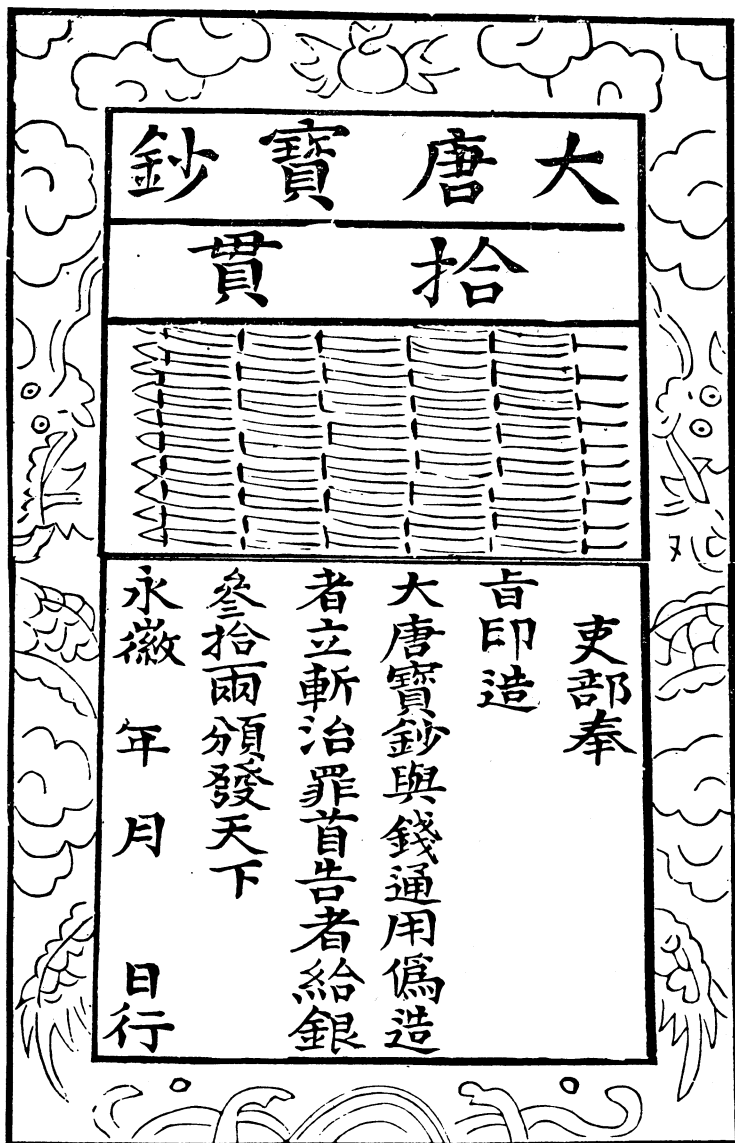 大唐寶鈔
拾貫
吏部奉
旨印造
大唐寶鈔與錢通用僞造
者立斬治罪首告者給銀
叄拾兩頒發天下
永徽 年 月 日行